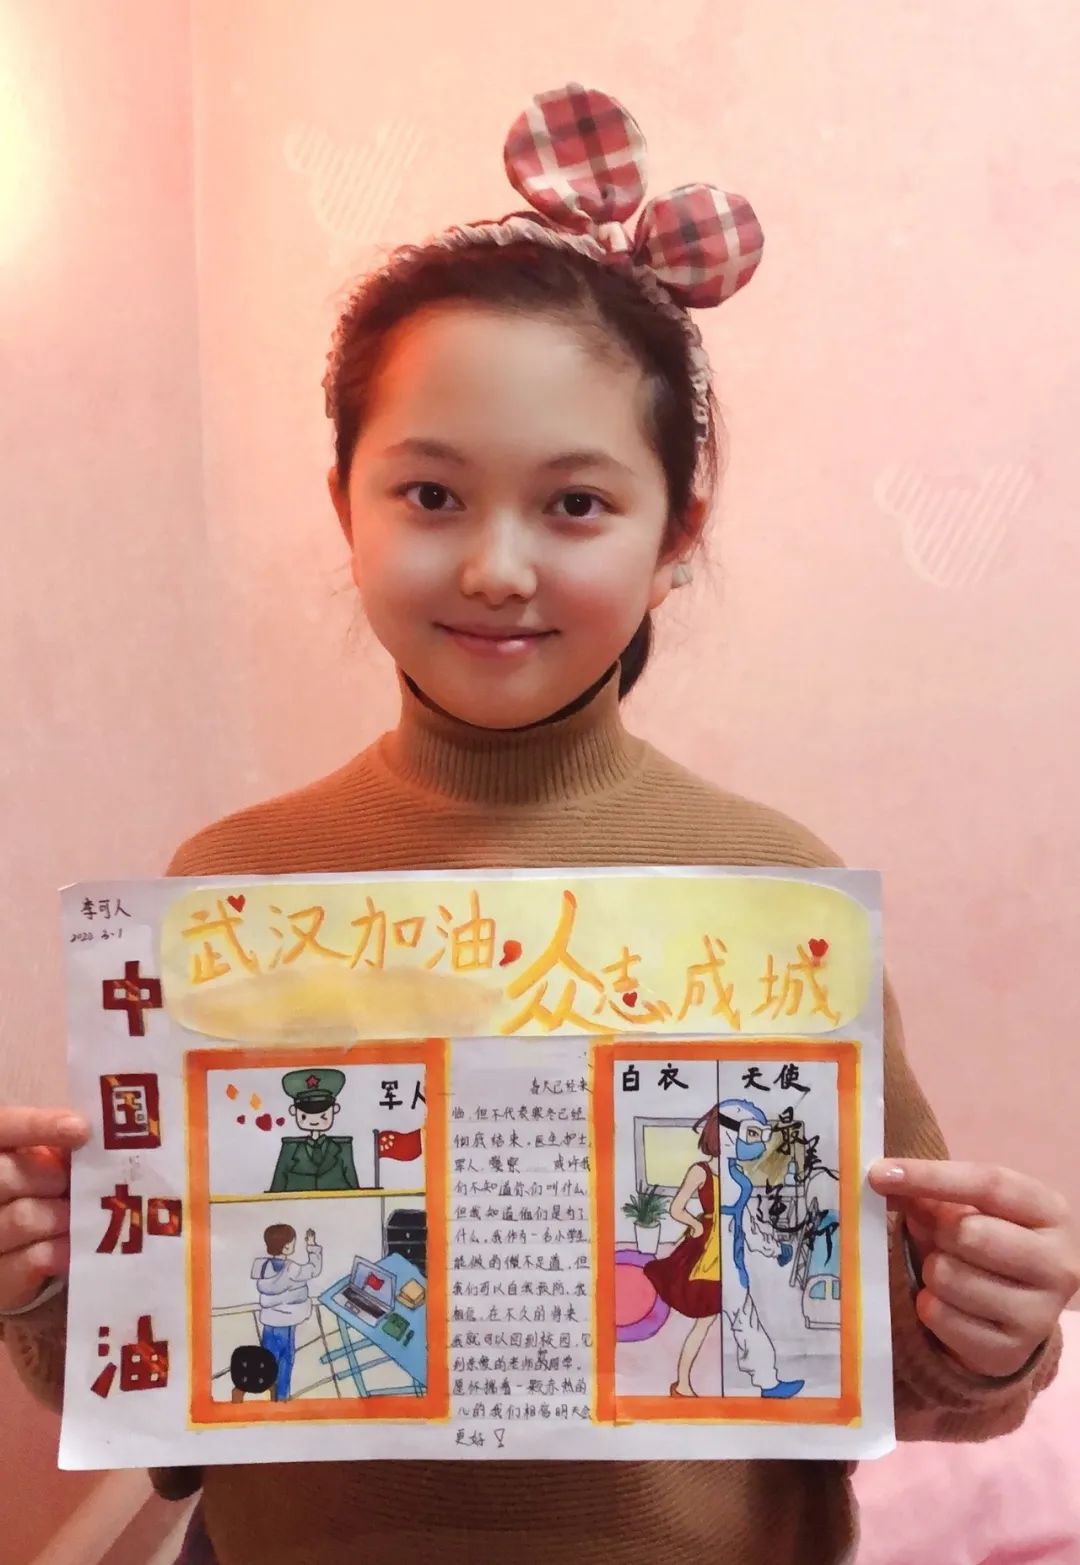 李可人
2020.3.1
中国加油
武汉加油,众志成城
军人
春天已经来
临,但不代表寒冬已经
彻底结束,医生护士,
军人、警察 或许我
们不知道你们叫什么
但我知道他们是为了
什么。我作为一名小学生
能做的微不足道,但
我们可以自我预防,我
相信,在不久的将来
我就可以回到校园,见
到亲爱的老师和同学。
愿怀揣着一颗赤热的
心的我们相信明天会
更好!
白衣 天使
最美逆行